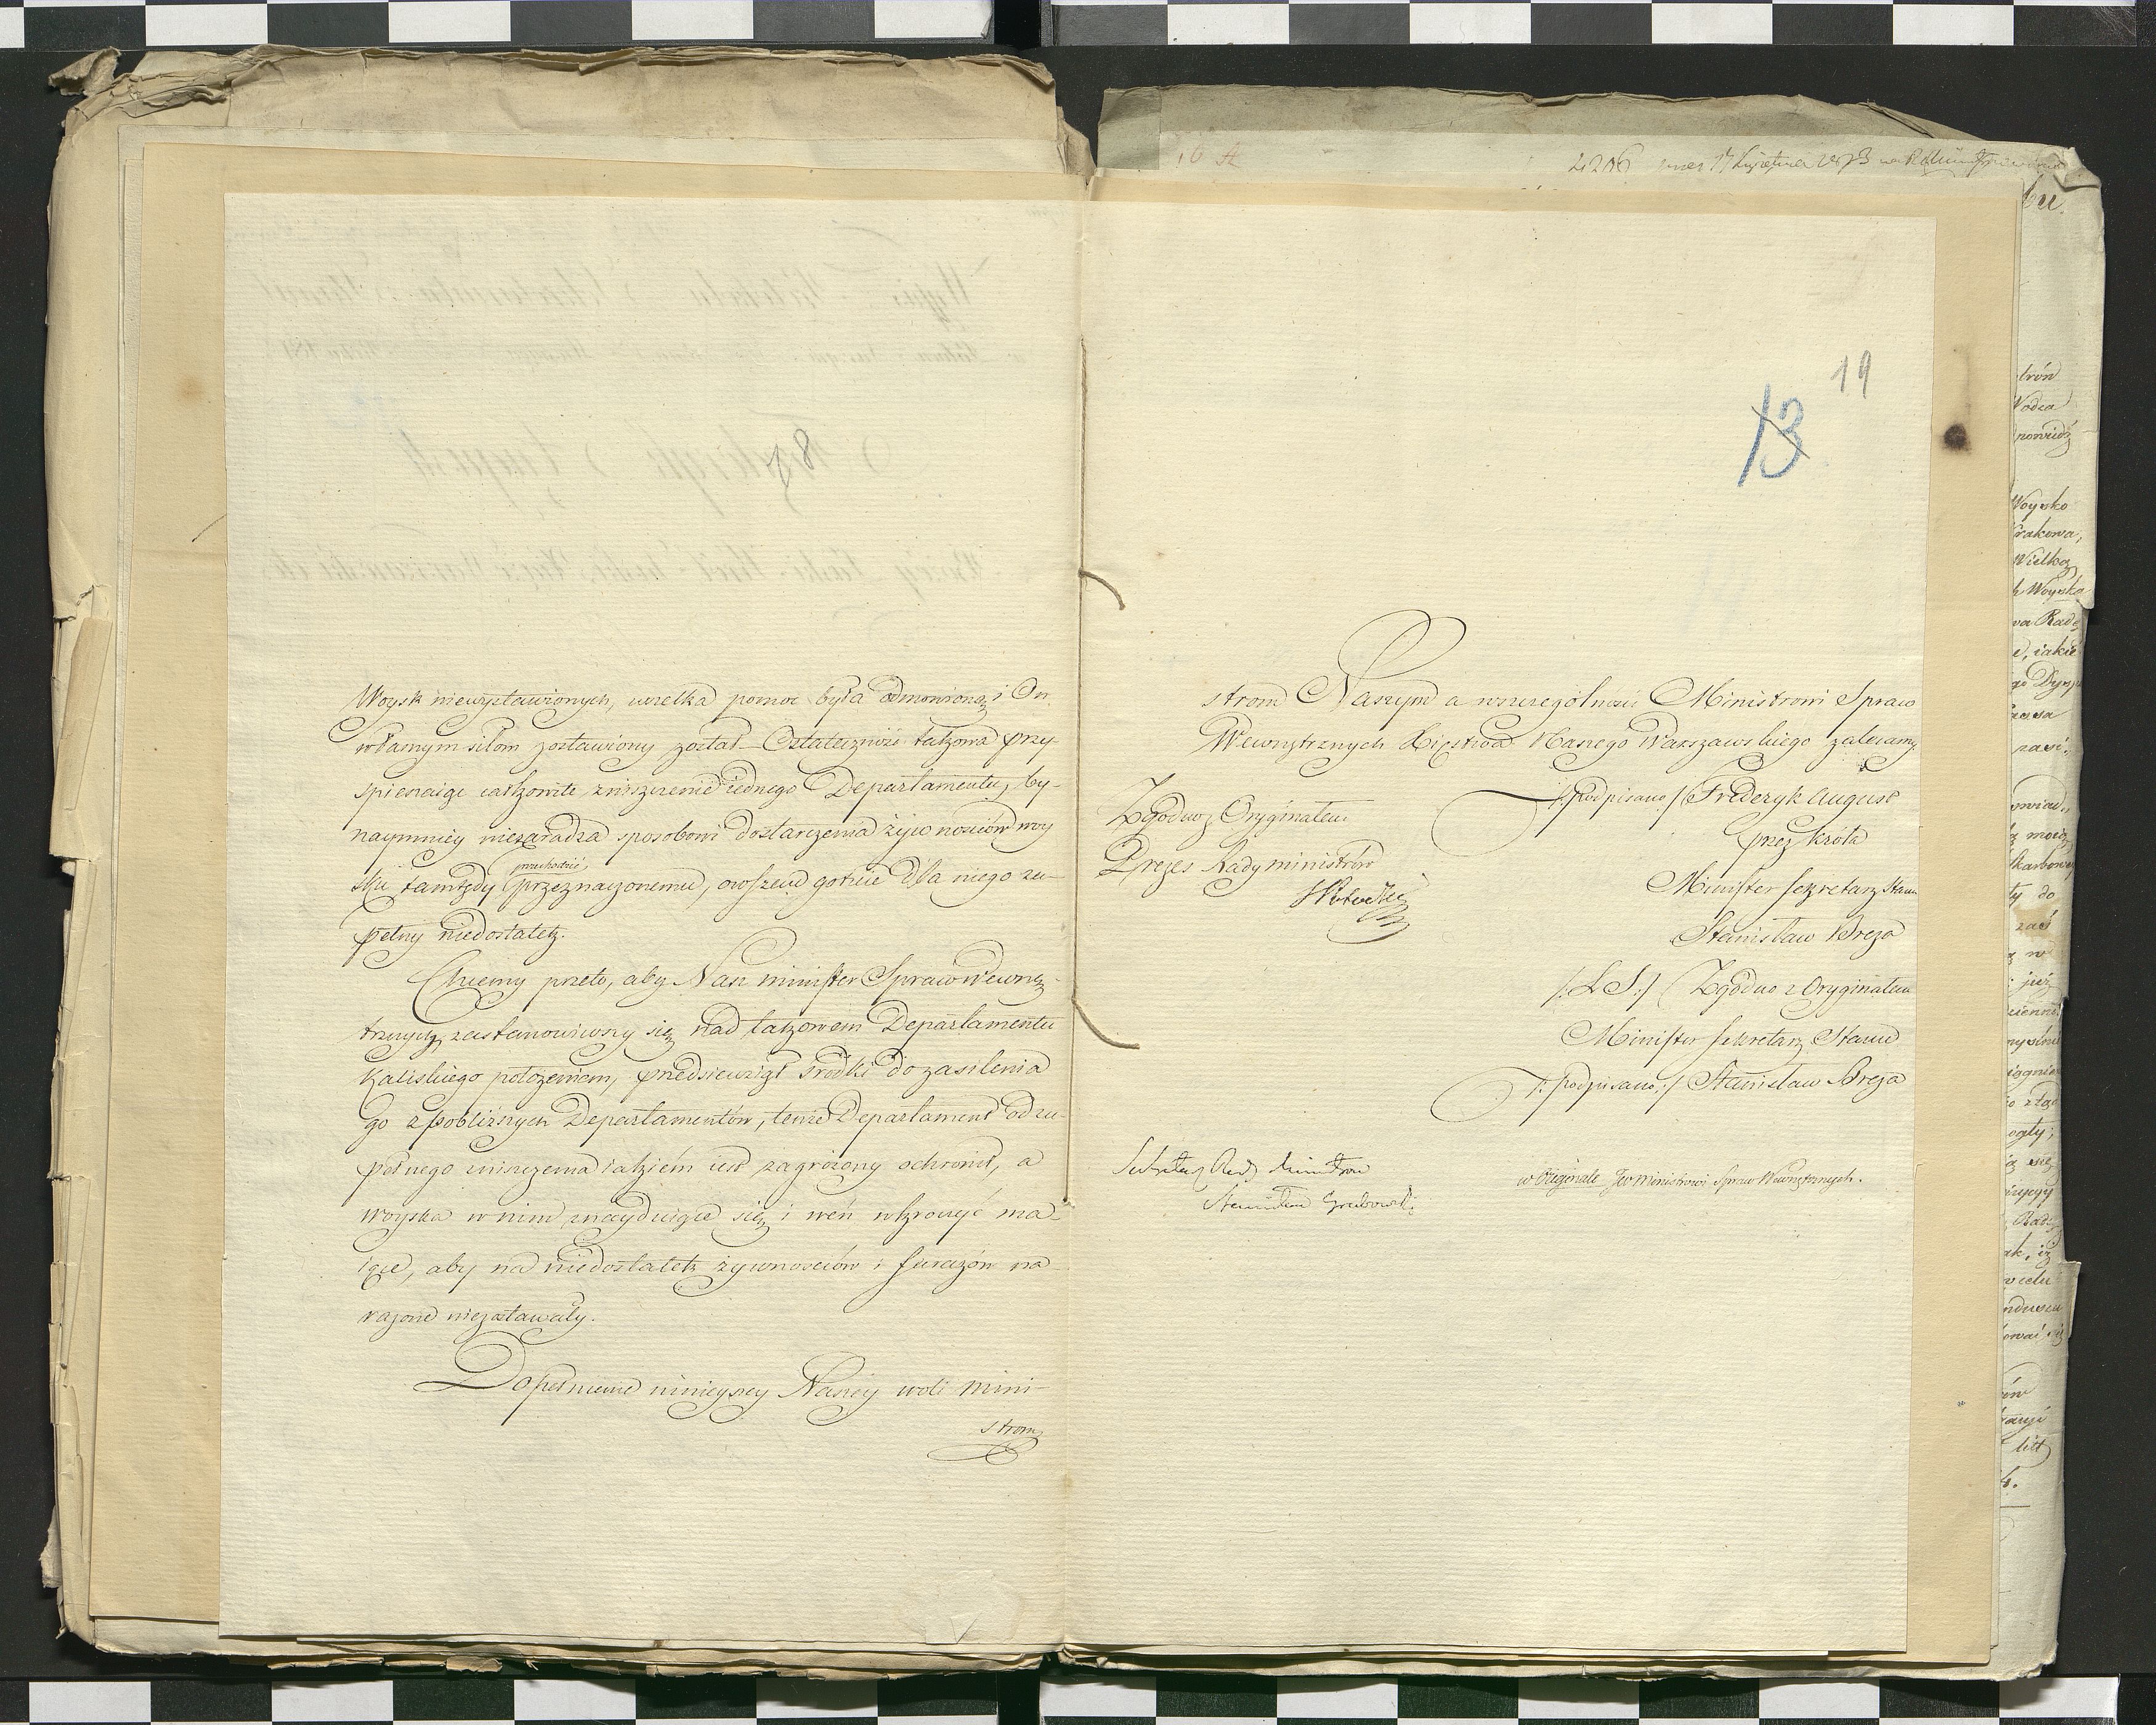 18
Woysk niewystawionych, wszelka pomoc była odmowioną i On
własnym siłom zostawiony został – Ostateczność takowa przy-
spieszaiąc całkowite zniszczenie iednego Departamentu, by-
naymniey niezaradza sposobowi dostarczenia żywnościów woy
sku tamtędy przechodzić przeznaczonemu, owszem gotuie dla niego zu-
pełny niedostatek.
Chcemy przeto, aby Nasz minister Spraw Wewnę-
trznych, zastanowiwszy się nad takowem Departamentu
Kaliskiego położeniem, przedsiewziął środki do zasilenia
go z pobliższych Departamentów, tenże Departament od zu-
pełnego zniszczenia iakiém iest zagrożony ochronił, a
woyska w nim znayduiące się i weń wkroczyć ma-
iące, aby na niedostatek żywnościów i furażów na
rażone niezostawały.
Dopełnienie ninieyszey Naszéy woli mini-
strom
19
13
strom Naszym a wszczególności Ministrowi Spraw
Wewnętrznych Xięstwa Naszego Warszawskiego zalecamy
/:podpisano:/ Fréderyk August
przez króla
Minister Sekretarz Stanu
Stanisław Breza
/:L S:/ Zgodno z Oryginałem
Minister Sekretarz Stanu
/:podpisano:/ Stanisław Breza
Zgodno z Oryginałem
Prezes Rady ministrów
Sekretarz Rady Ministrów
Stanisław Grabowski
w Originale JW Ministrowi Spraw Wewnętrznych.
4206
bu
Wodca
Woysko
Krakowa,
Wielką
Woyska
Radę
iakie